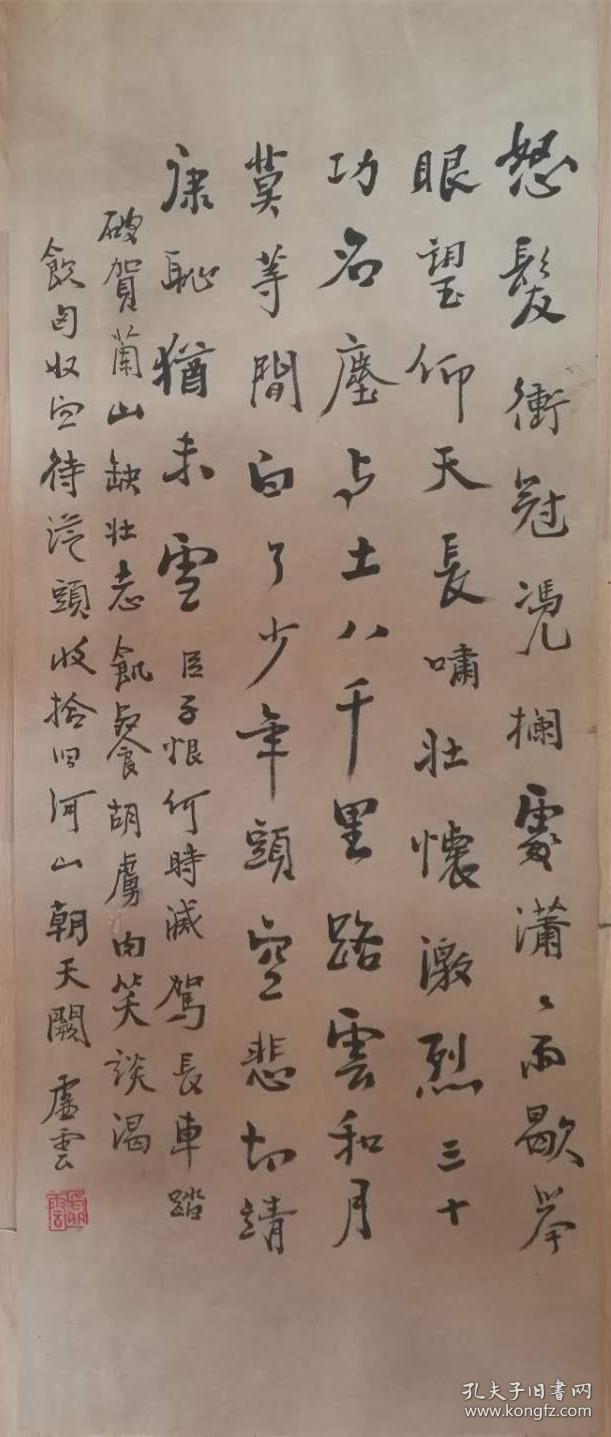 怒髮衝冠凴欄處瀟々雨歇举
眼望仰天長嘯壯懷激烈三十
功名塵与土八千里路雲和月
莫等間白了少年頭空悲切靖
康恥猶未雪臣子恨何時滅駕長車踏
破賀蘭山缺壯志飢餐胡虜肉笑談渴
飲匈奴血待從頭收拾旧河山朝天闕 虛雲
虛雲
孔夫子旧書网
www.kongfz.com